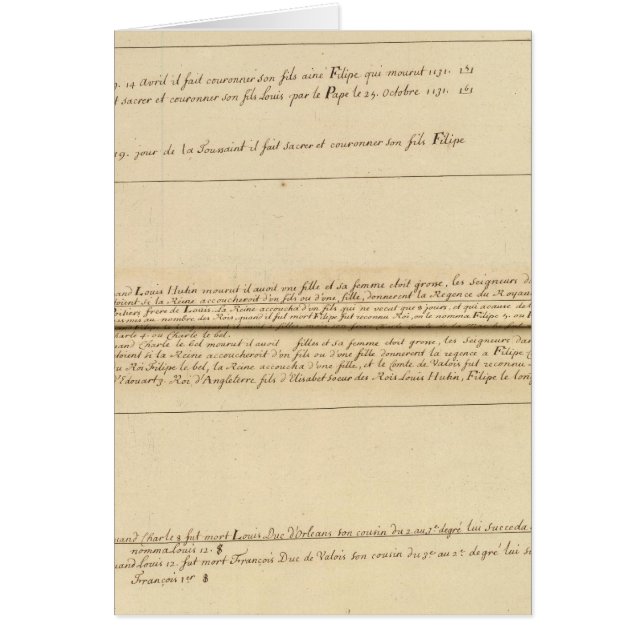 9. 14 Avril il fait couronner son fils ainé Filipe qui mourut 1131. 151
t sacrer et couronner son fils Louis par le Pape le 25. Octobre 1131. 161
19. jour de la Toussaint il fait sacrer et couronner son fils Filipe
and Louis Hutin mourut il avoit vne fille et sa femme etoit grose, les seigneurs d
toient si la Reine accoucheroit d'on fils ou d'one, fille, donnerent la Regence du Royau
ntiers frere de Louis. La Reine accoucha d'on fils qui ne vecut que 8 jours, et qui a cause de
mis au nombre des Rois, quand il fut mort Filipe fut reconnu Roi, on le nomma Filipe 5. ou
harle 4. ou Charle le bel.
uand Charle le bel mourut il avoit filles et sa femme etoit grose, les seigneurs da
doient si la Reine accoucheroit d'on fils ou d'one fille donnerent la regence a Filipe
u Roi Filipe le bel, la Reine accoucha d'une fille, et le Comte de Valois fut reconnu
d'Edouart 3. Roi d'Angleterre fils d'Elisabet soeur des Rois Louis Hutin, Filipe le long
uand Charle 8 fut mort Louis Duc d'Orleans son cousin du 2 au 3e. degré lui succeda
nomma Louis 12. $
uand Louis 12. fut mort François Duc de Valois son cousin du 3e au 2e degré lui s
François 1er $